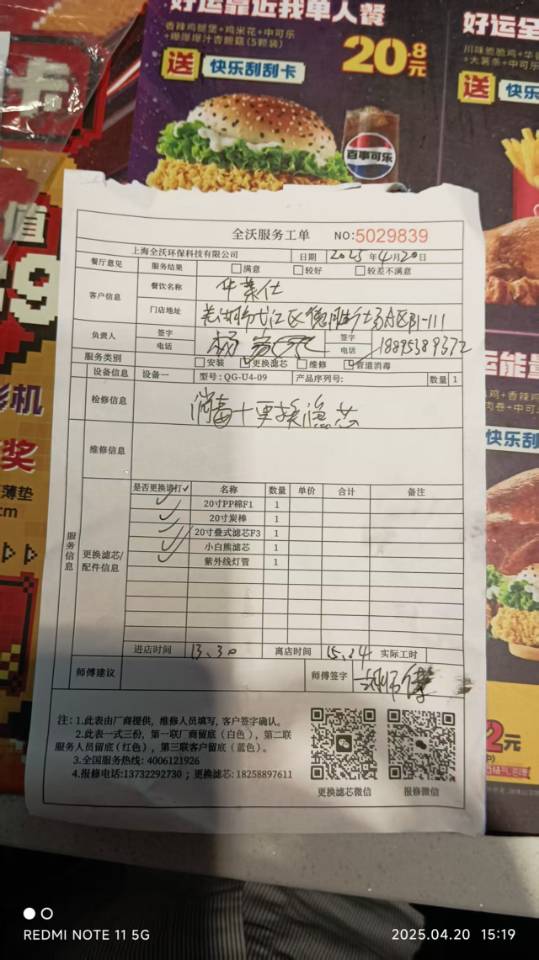 好运靠近我单人餐
香辣鸡腿堡+鸡米花+中可乐
送 快乐刮刮卡
20.8元
百事可乐
好运全
川味脆脆鸡+华
+大薯条+中可乐
送 快乐
卡
值
影机
奖
薄垫
cm
运能量
鸡+香辣鸡
肉卷+中可
快乐刮
2元
全沃服务工单 NO:5029839
上海全沃环保科技有限公司 日期 2025年4月20日
餐厅意见 服务结果 满意 较好 较差不满意
客户信息 餐饮名称 华莱仕
门店地址
负责人 签字 签字
电话 电话 18895389372
服务类别 安装 更换滤芯 维修 管道消毒
设备信息 设备一 型号: QG-U4-09 产品序列号: 数量 1
检修信息 消毒+更换滤芯
维修信息
服务信息
更换滤芯/配件信息
是否更换请打✓ 名称 数量 单价 合计 备注
✓ 20寸PP棉F1 1
✓ 20寸炭棒 1
✓ 20寸叠式滤芯F3 1
✓ 小白熊滤芯 1
✓ 紫外线灯管 1
进店时间 13.30 离店时间 15.24 实际工时
师傅建议 师傅签字
注: 1.此表由厂商提供, 维修人员填写, 客户签字确认。
2.此表一式三份, 第一联厂商留底(白色), 第二联
服务人员留底(红色), 第三联客户留底(蓝色)。
3.全国服务热线: 4006121926
4.报修电话:13732292730 ; 更换滤芯: 18258897611
更换滤芯微信 报修微信
REDMI NOTE 11 5G 2025.04.20 15:19